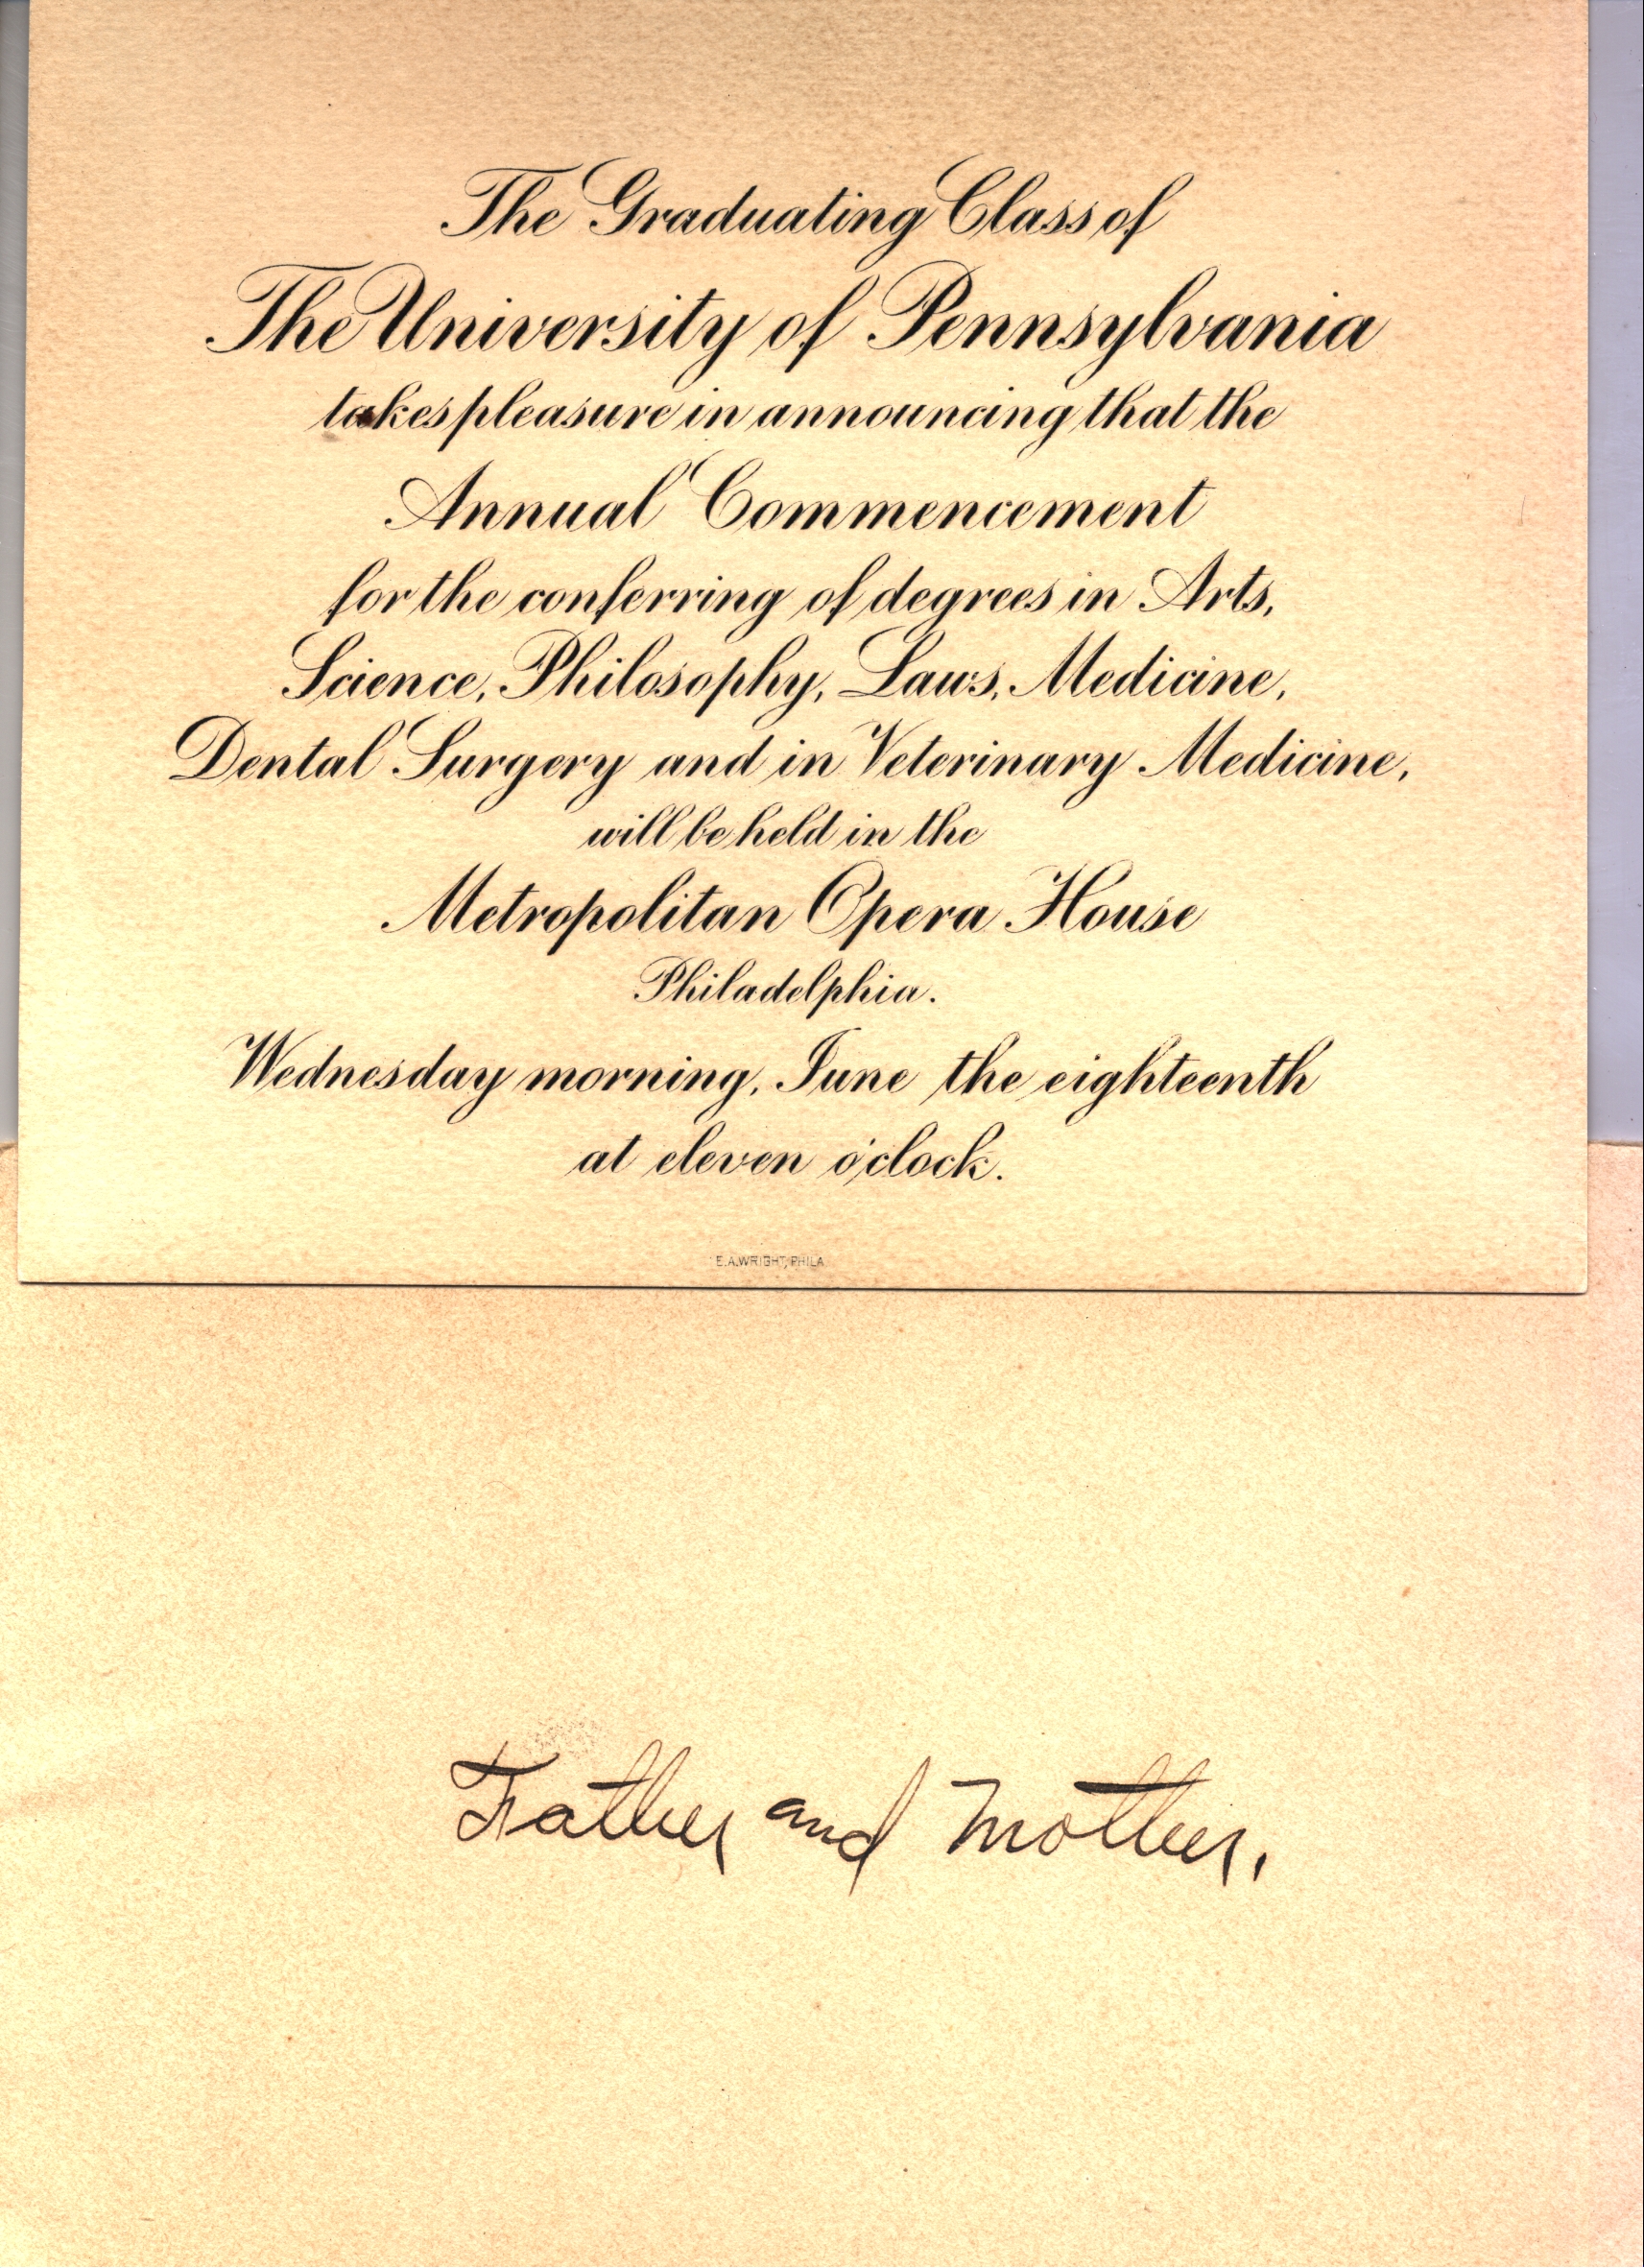 The Graduating Class of
The University of Pennsylvania
takes pleasure in announcing that the
Annual Commencement
for the conferring of degrees in Arts,
Science, Philosophy, Laws, Medicine,
Dental Surgery and in Veterinary Medicine,
will be held in the
Metropolitan Opera House
Philadelphia.
Wednesday morning, June the eighteenth
at eleven o'clock.
E.A.WRIGHT, PHILA.
Father and Mother.